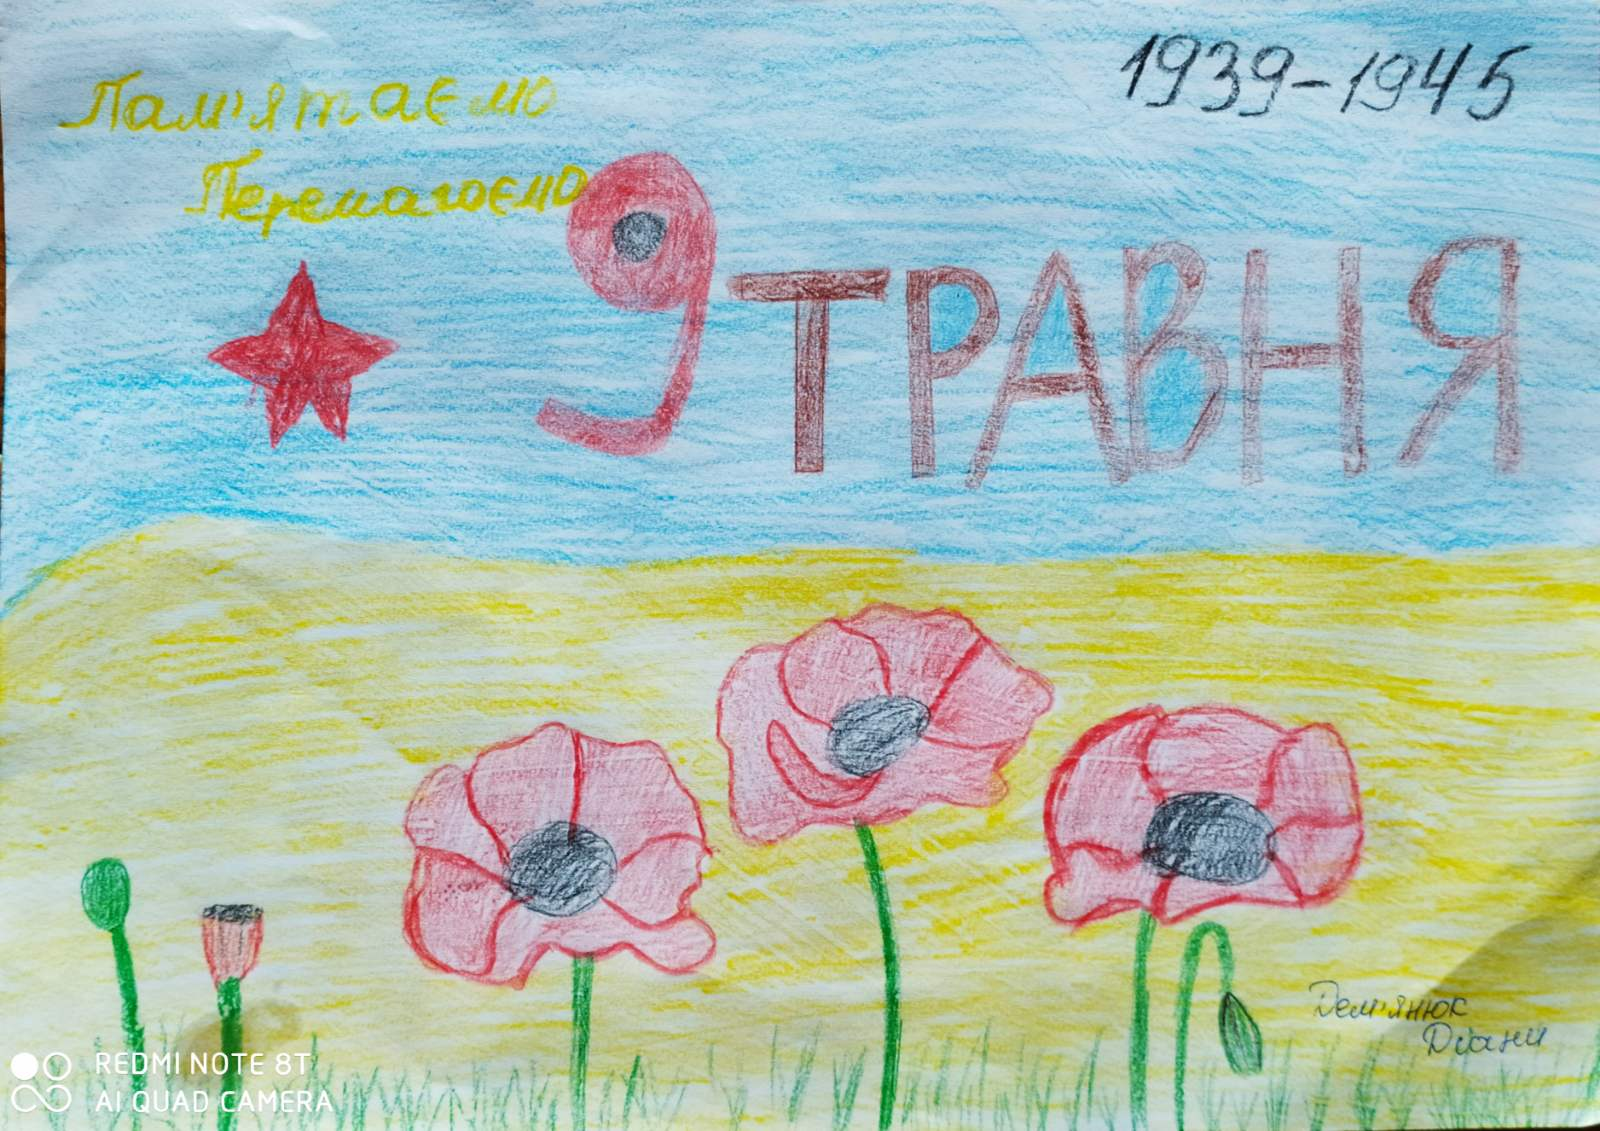 Пам'ятаємо
Перемагаємо
1939-1945
9 ТРАВНЯ
Дем'янюк
Діани
REDMI NOTE 8T
AI QUAD CAMERA